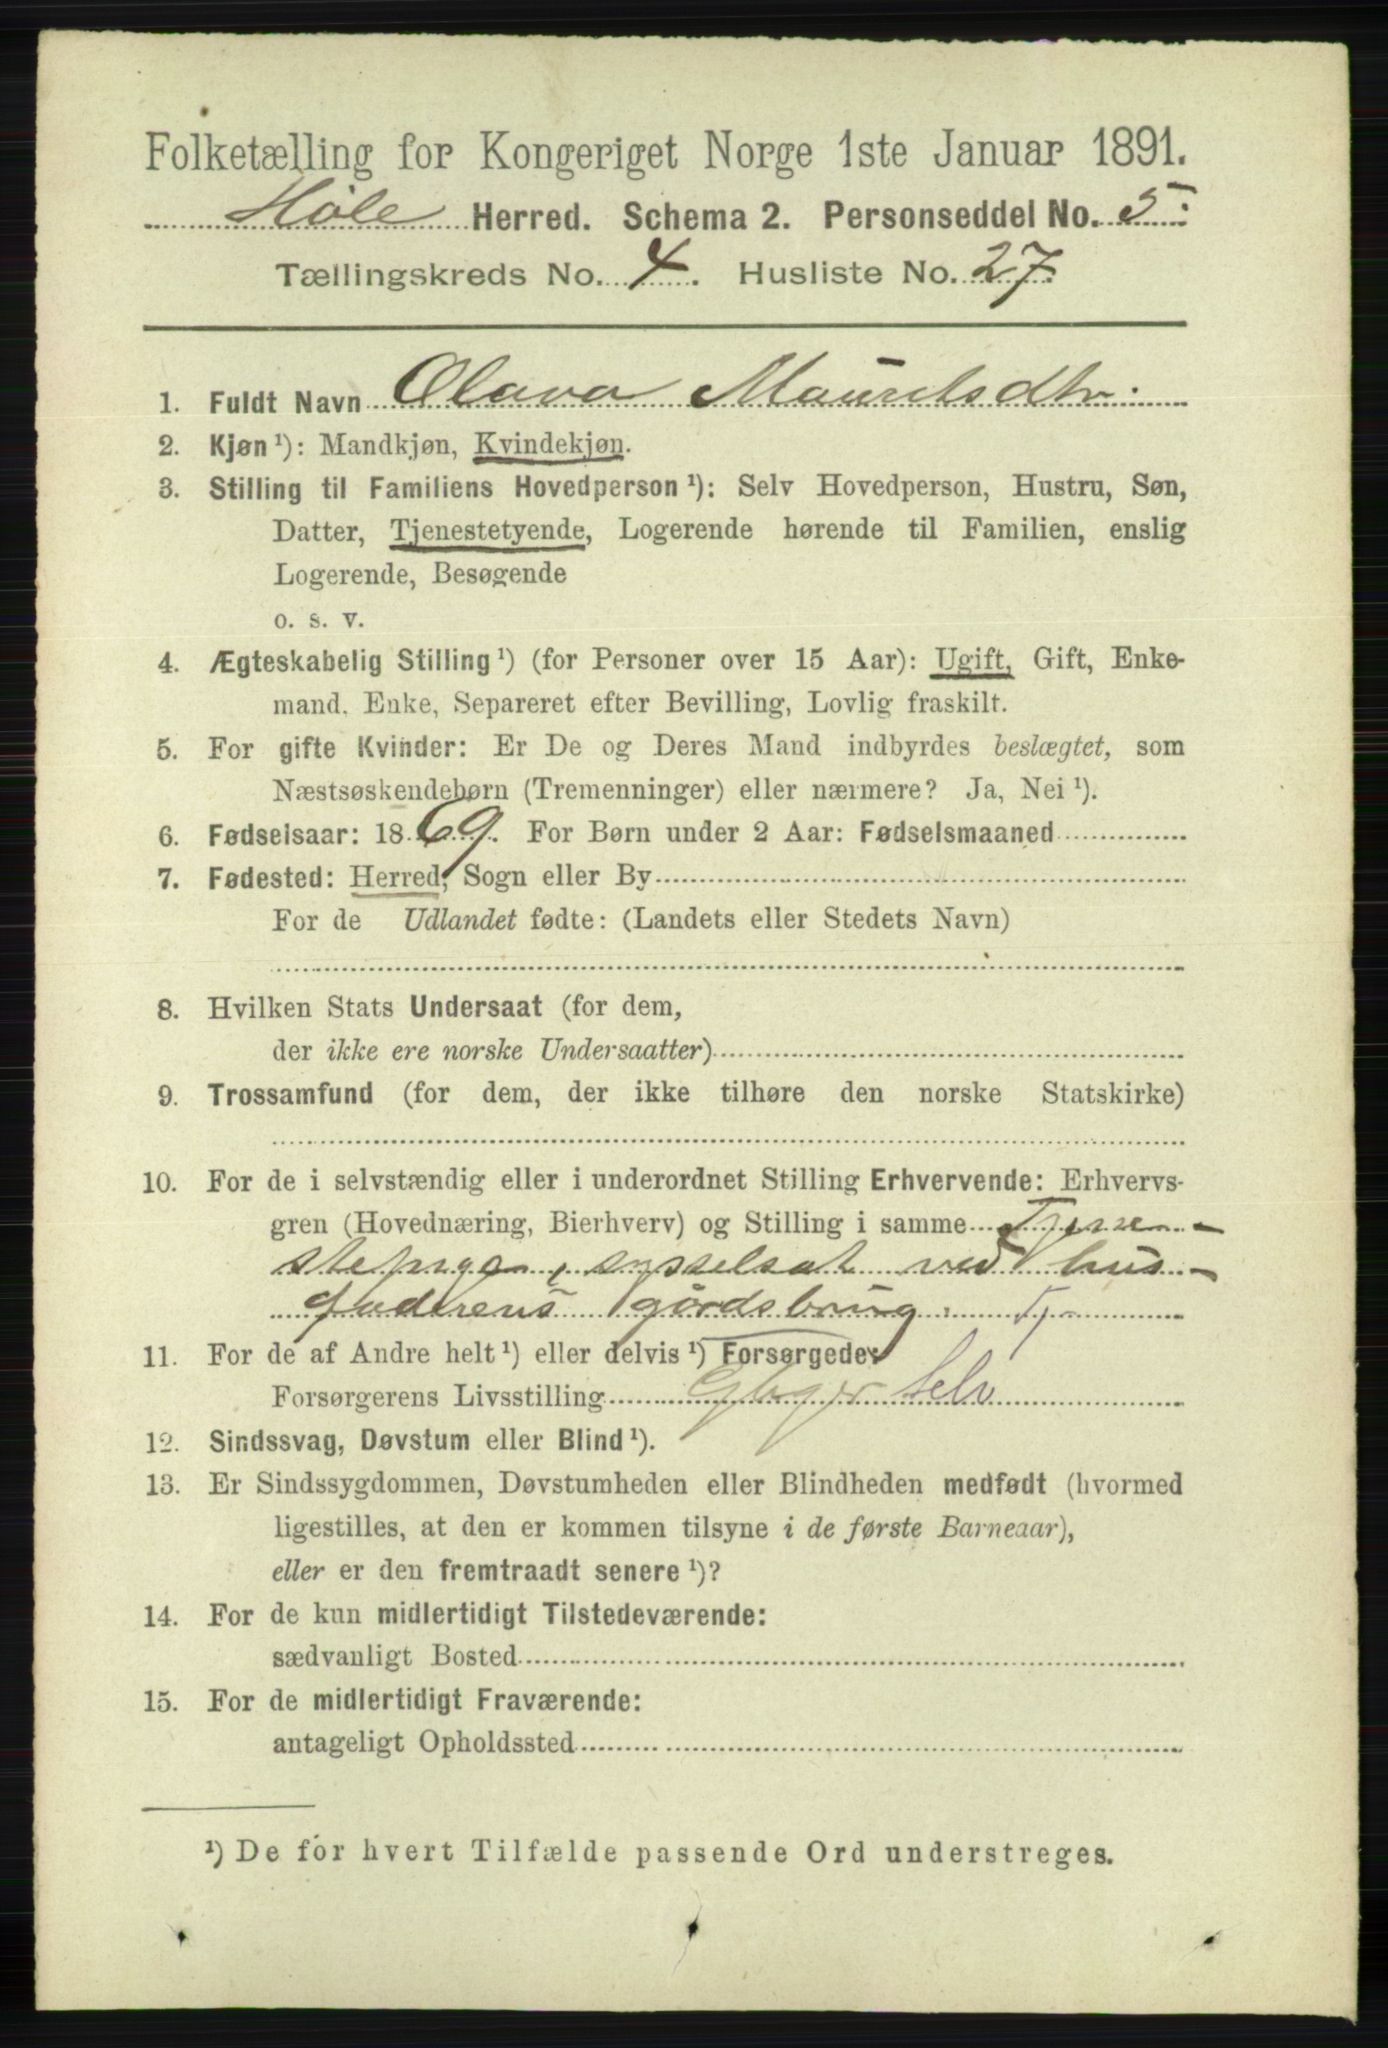 Folketælling for Kongeriget Norge 1ste Januar 1891.
Høle Herred. Schema 2. Personseddel No. 5.
Tællingskreds No. 4. Husliste No. 27.
1. Fuldt Navn Olava Mauritsdtr.
2. Kjøn ¹): Mandkjøn, Kvindekjøn.
3. Stilling til Familiens Hovedperson ¹): Selv Hovedperson, Hustru, Søn,
Datter, Tjenestetyende, Logerende hørende til Familien, enslig
Logerende, Besøgende
o. s. v.
4. Ægteskabelig Stilling ¹) (for Personer over 15 Aar): Ugift, Gift, Enke-
mand, Enke, Separeret efter Bevilling, Lovlig fraskilt.
5. For gifte Kvinder: Er De og Deres Mand indbyrdes beslægtet, som
Næstsøskendebørn (Tremenninger) eller nærmere? Ja, Nei ¹).
6. Fødselsaar: 1869. For Børn under 2 Aar: Fødselsmaaned
7. Fødested: Herred, Sogn eller By
For de Udlandet fødte: (Landets eller Stedets Navn)
8. Hvilken Stats Undersaat (for dem,
der ikke ere norske Undersaatter)
9. Trossamfund (for dem, der ikke tilhøre den norske Statskirke)
10. For de i selvstændig eller i underordnet Stilling Erhvervende: Erhvervs-
gren (Hovednæring, Bierhverv) og Stilling i samme Tjene-
stepige, sysselsat ved hus-
faderens gårdsbrug. Tj
11. For de af Andre helt ¹) eller delvis ¹) Forsørgede:
Forsørgerens Livsstilling Selv
12. Sindssvag, Døvstum eller Blind ¹).
13. Er Sindssygdommen, Døvstumheden eller Blindheden medfødt (hvormed
ligestilles, at den er kommen tilsyne i de første Barneaar),
eller er den fremtraadt senere ¹)?
14. For de kun midlertidigt Tilstedeværende:
sædvanligt Bosted
15. For de midlertidigt Fraværende:
antageligt Opholdssted
¹) De for hvert Tilfælde passende Ord understreges.